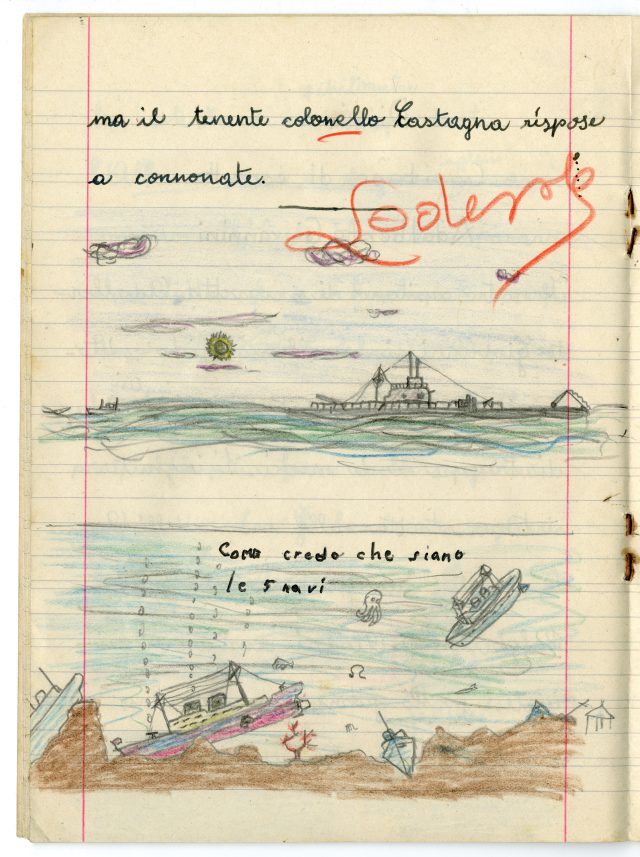 ma il tenente colonello Castagna rispose
a connonate.
Lodevole
Come credo che siano
le 5 navi